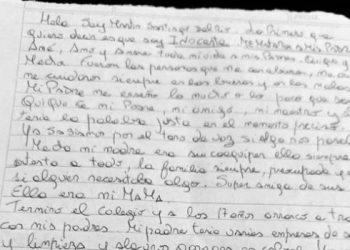 Hola Soy Martín Santiago del Rio. Lo Primero que
quiero decir es que soy INOCENTE ME MATARON A MIS PADRES
Amé, Amo y Amaré toda mi vida a mis Padres. Quique y
Meda fueron las personas que me
me cuidaron siempre en las buenas y en las malas
Mi Padre me enseño la mucho o lo poco que
Quique es mi Padre, mi amigo, mi maestro y
tenia la palabra justa en el momento preciso.
Ya sabiamos por el tono de voz si algo nos
Meda mi madre era su ella siempre
atenta a todo, la familia siempre, preocupada
si alguien necesitaba algo. Super amiga de sus
Ella era mi MAMA
Termino el Colegio y a los 17 años arranco a
con mis padres. Mi padre tenia varias empresas de
y limpieza y